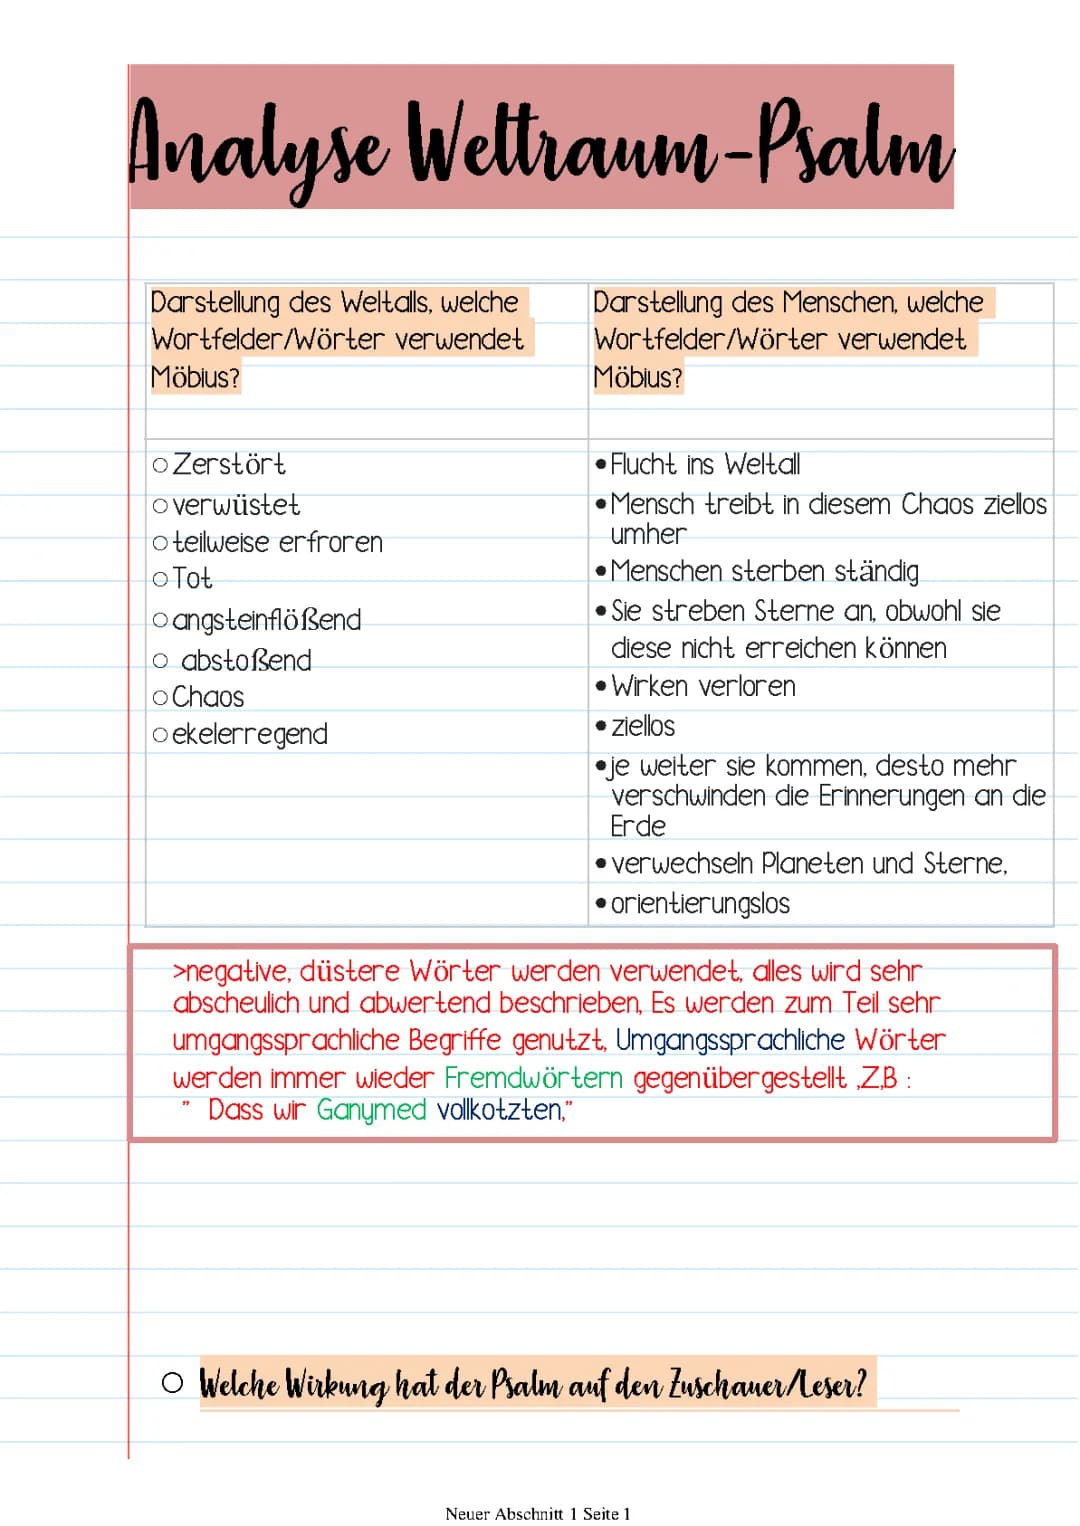 Analyse Weltraum-Psalm
Darstellung des Weltalls, welche
Wortfelder/Wörter verwendet
Möbius?
Darstellung des Menschen, welche
Wortfelder/Wörter verwendet
Möbius?
Zerstört
verwüstet
teilweise erfroren
Tot
angsteinflößend
abstoßend
Chaos
ekelerregend
Flucht ins Weltall
Mensch treibt in diesem Chaos ziellos
umher
Menschen sterben ständig
Sie streben Sterne an, obwohl sie
diese nicht erreichen können
Wirken verloren
ziellos
je weiter sie kommen, desto mehr
verschwinden die Erinnerungen an die
Erde
verwechseln Planeten und Sterne,
orientierungslos
>negative, düstere Wörter werden verwendet, alles wird sehr
abscheulich und abwertend beschrieben, Es werden zum Teil sehr
umgangssprachliche Begriffe genutzt, Umgangssprachliche Wörter
werden immer wieder Fremdwörtern gegenübergestellt ,Z,B :
" Dass wir Ganymed vollkotzten,"
Welche Wirkung hat der Psalm auf den Zuschauer/Leser?
Neuer Abschnitt 1 Seite 1